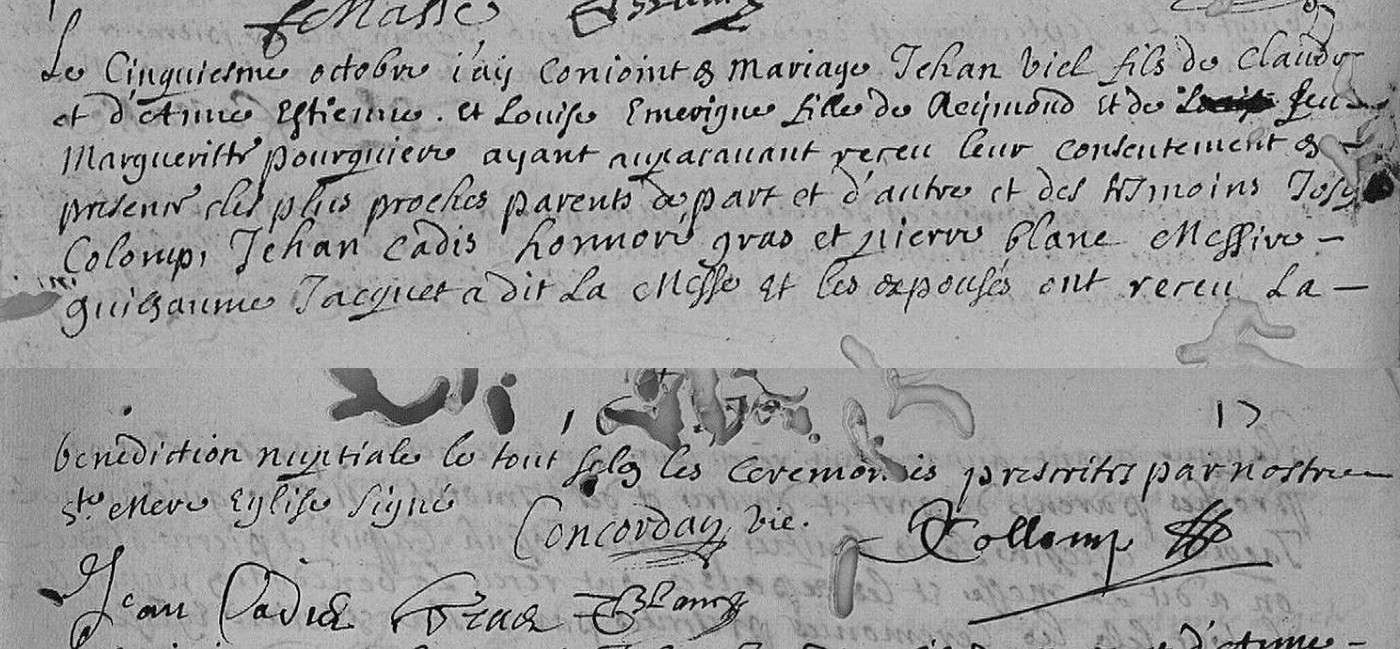 Masse
Le Cinquiesme octobre i'aij Conioint & mariage Jehan Viel fils de Claude
et d'Anne Estienne. et Louise Emerigue fille de Reijmond et de feu
Margueritte pourquiere ayant auparauant receu leur consentement &
presence des plus proches parents de part et d'autre et des tesmoins Josep
Colomp, Jehan Cadis honnoré gras et pierre blanc Messire
guilhaume Jacquet a dit La Messe et les espousés ont receu La
17
benediction nuptiale le tout selon les Ceremonies prescrites par nostre
Ste Mere Eglise signé
Concorday, vic.
Collomp
Jean Cadis Gras Blanc
d'Anne